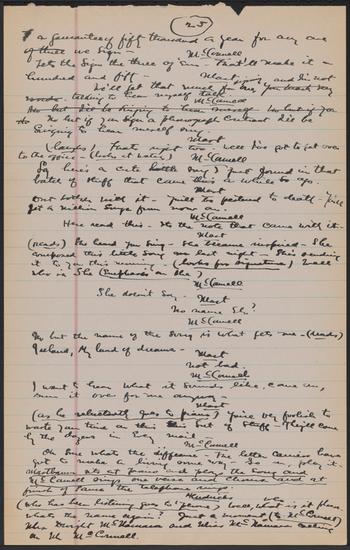 2-5
a guarantee of fifty thousand a year for any one
of three we sign -
McConnell
Lets sign the three of 'em - That'll make it a
hundred and fifty -
Mart
We'll get that much for one,
talking to hear myself talk
McConnell
No but if you sign a phonograph contract I'll be
singing to hear myself sing
Mart
(laughs) That's right too - well I've got to get over
to the office - (looks at watch)
McConnell
Say here's a cute little song I just found in that
batch of stuff that came in a while ago.
Mart
Dont bother with it - You'll be pestered to death - You'll
get a million songs from now on.
McConnell
Here read this - It's the note that came with it.
Mart
(reads) She heard you sing - She became inspired - She
composed this little song last night - She's sending
it to you this morning - (looks for signature) Well
who is She (Emphasis on She)
McConnell
She doesn't say -
Mart
No name Eh?
McConnell
No but the name of the song is what gets me - (reads)
Ireland, My land of dreams -
Mart
Not bad
McConnell
I want to hear what it sounds like, come on,
run it over for me
Mart
(as he reluctantly goes to piano) You're very foolish to
waste your time on this sort of stuff - They'll come
by the dozens in every mail -
McConnell
Oh sure what's the difference - The letter carriers have
got to make a living some way - Go on, play it -
sits at piano and plays the song and
McConnell sings one verse and chorus and at
finish of song the telephone rings
Hendricks
(who has been listening goes to phone) Well, what is it please
what's the name again? Just a moment (to McConnell)
Miss McNamara and Miss McNamara calling
on Mr McConnell.